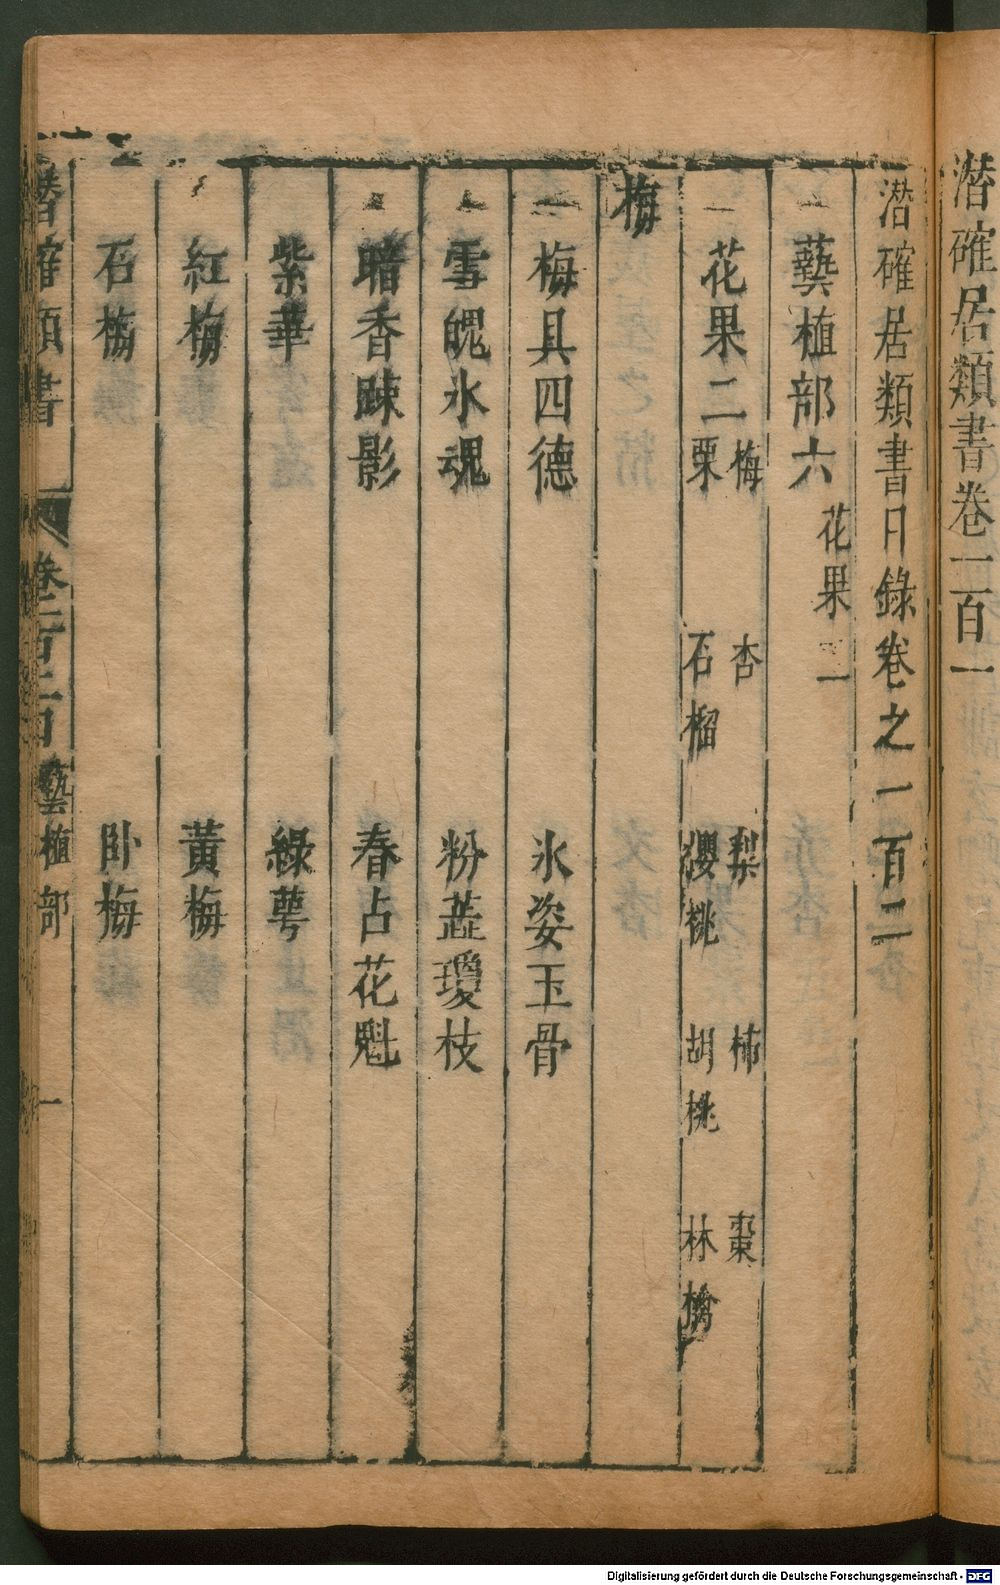 潛確居類書卷一百一
潛確居類書目錄卷之一百二
藝植部六 花果二
花果二 梅 杏 梨 柿 棗
栗 石榴 櫻桃 胡桃 林檎
梅
梅具四德 氷姿玉骨
雪魄氷魂 粉蕋瓊枝
暗香踈影 春占花魁
紫華 綠萼
紅梅 黃梅
石梅 卧梅
潛確類書 卷一百二目 藝植部 一
Digitalisierung gefördert durch die Deutsche Forschungsgemeinschaft - DFG